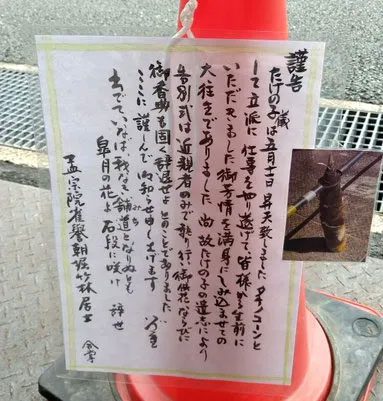 謹告
たけの子(蔵)は五月十一日 昇天致しました タケノコーンと
して立派に 仕事をやり遂げて、皆様から生前に
いただきました御厚情を満身にしみ込ませての
大往生でありました 尚 故たけの子の遺志により
告別式は近親者のみで執り行い御供花ならびに
御香典も固く辞退せよ とのことでありました
ここに 謹しんで御知らせ申し上げます
出でていなば 主なき舗道となりぬとも
皐月の花よ 石段に咲け 辞世
孟宗院
竹林居士
合掌